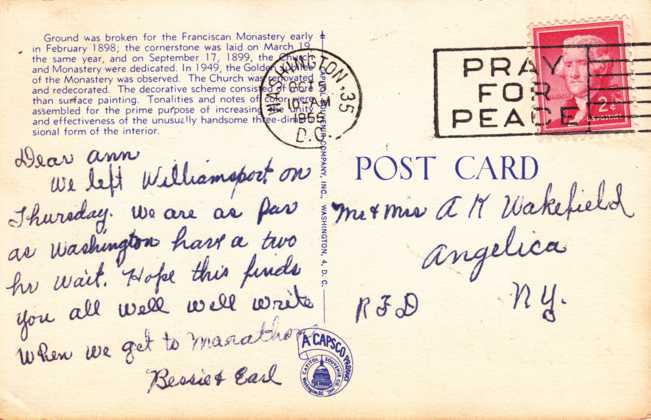 Ground was broken for the Franciscan Monastery early
in February 1898; the cornerstone was laid on March 19
the same year, and on September 17, 1899, the Church
and Monastery were dedicated. In 1949, the Golden
of the Monastery was observed. The Church was renovated
and redecorated. The decorative scheme consisted of more
than surface painting. Tonalities and notes of color were
assembled for the prime purpose of increasing the unity
and effectiveness of the unusually handsome three-dimen-
sional form of the interior.
Dear Ann
We left Williamsport on
Thursday. We are as far
as Washington have a two
hr wait. Hope this finds
you all well will write
when we get to Marathon
Bessie & Earl
WASHINGTON
OCT
10 AM
1955
D.C.
35
PRAY
FOR
PEACE
2¢
POST CARD
Mr & Mrs A K Wakefield
Angelica
R F D
N.Y.
COMPANY, INC., WASHINGTON, 4, D. C.
A CAPSCO PRODUCT